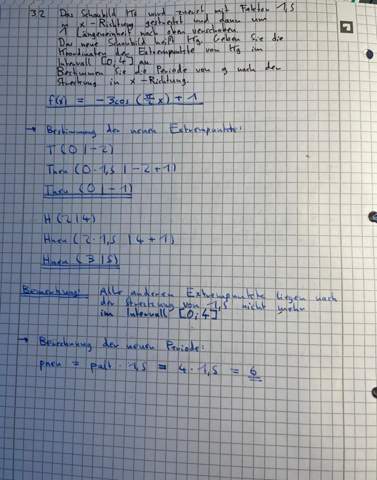 3.2 Das Schaubild Kf wird zuerst mit Faktor 1,5
in x-Richtung gestreckt und dann um
1 Längeneinheit nach oben verschoben.
Das neue Schaubild heißt Kg. Geben Sie die
Koordinaten der Extrempunkte von Kg im
Intervall [0,4] an.
Bestimmen Sie die Periode von g nach der
Streckung in x-Richtung.
f(x) = -3cos(π/2 x) + 1
→ Bestimmung der neuen Extrempunkte:
T(0|-2)
Tneu(0·1,5|-2+1)
Tneu(0|-1)
H(2|4)
Hneu(2·1,5|4+1)
Hneu(3|5)
Bemerkung: Alle anderen Extrempunkte liegen nach
der Streckung von 1,5 nicht mehr
im Intervall [0,4].
→ Berechnung der neuen Periode:
pneu = palt · 1,5 = 4·1,5 = 6